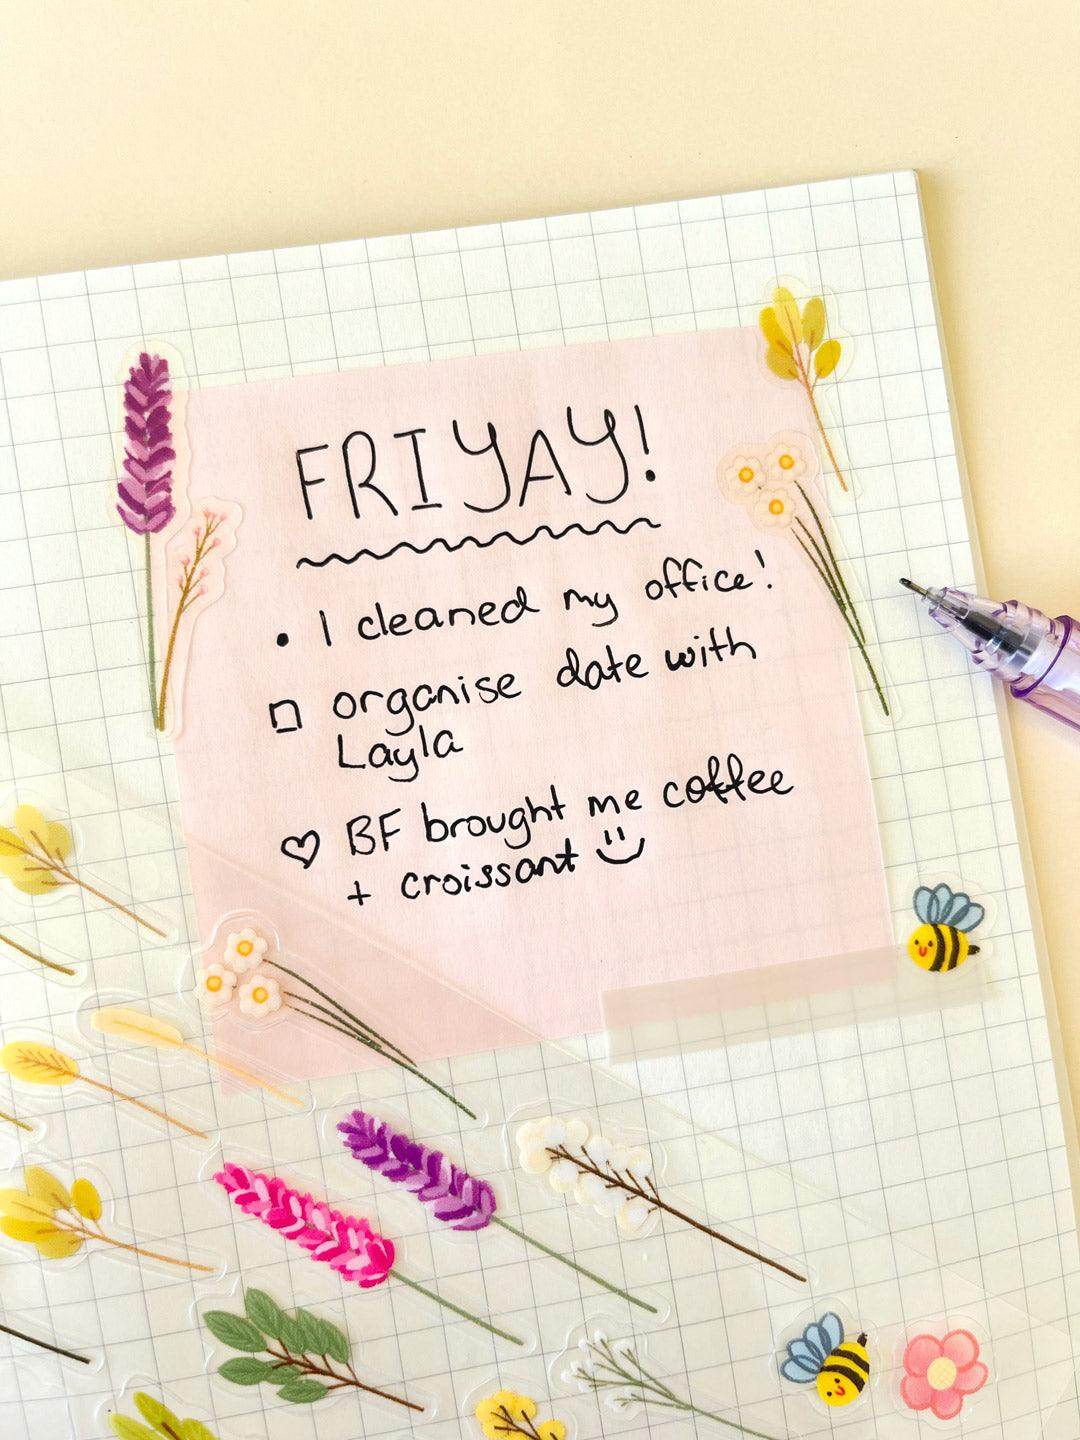 FRIYAY!
• I cleaned my office!
□ organise date with
Layla
♡ BF brought me coffee
+ croissant